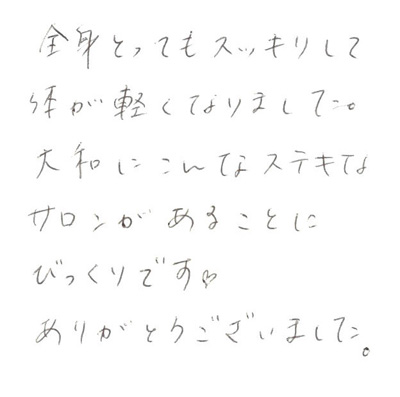 全身とってもスッキリして
体が軽くなりました。
大和にこんなステキな
サロンがあることに
びっくりです♡
ありがとうございました。